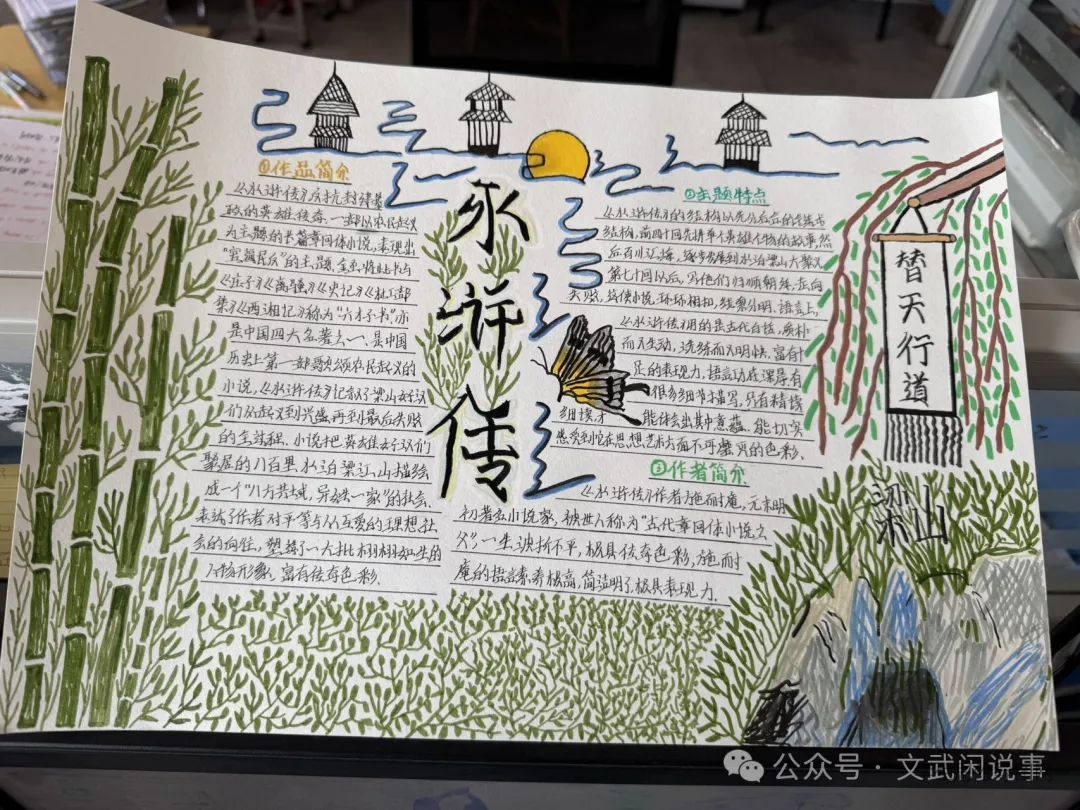 水浒传
①作品简介
《水浒传》反抗封建暴
政的英雄传奇,一部以农民起义
为主题的长篇章回体小说,表现出
"官逼民反"的主题,金圣叹将此书与
《庄子》《离骚》《史记》《杜工部
集》《西湘记》称为"六才子书"亦
是中国四大名著之一、是中国
历史上第一部歌颂农民起义的
小说,《水浒传》记叙了梁山好汉
们从起义到兴盛再到最后失败
的全过程、小说把英雄好汉们
聚居的八百里水泊梁江、山描绘
成一个"八方共域,异姓一家"的社会、
表达了作者对平等与人人互爱的理想社
会的向往,塑造了一大批栩栩如生的
人物形象,富有传奇色彩、
②主题特点
《水浒传》的结构以先分后合的
结构,前四十回先讲单个英雄人物的故事然
后百川江海、逐步发展到水泊梁山大聚义
第七十回以后,写他们归顺朝廷,走向
失败,致使小说,环环相扣,线索分明,语言上,
《水浒传》用的是古代白话,质朴
而又生动,洗练而又明快,富有十
足的表现力,语言功底深厚有
很多细节描写,只有精读
细读才能体会出其中意蕴、能切实
感受到它在思想艺术方面不可磨灭的色彩、
③作者简介
《水浒传》作者施耐庵,元末明
初著名小说家,被世人称为"古代章回体小说之
父"一生波折不平,极具传奇色彩,施耐
庵的语言素养极高,简洁明了极具表现力.
替天行道
梁山
公众号·文武闲说事